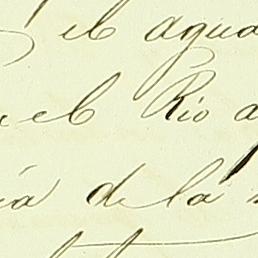 el agua
el Rio a
ia de la